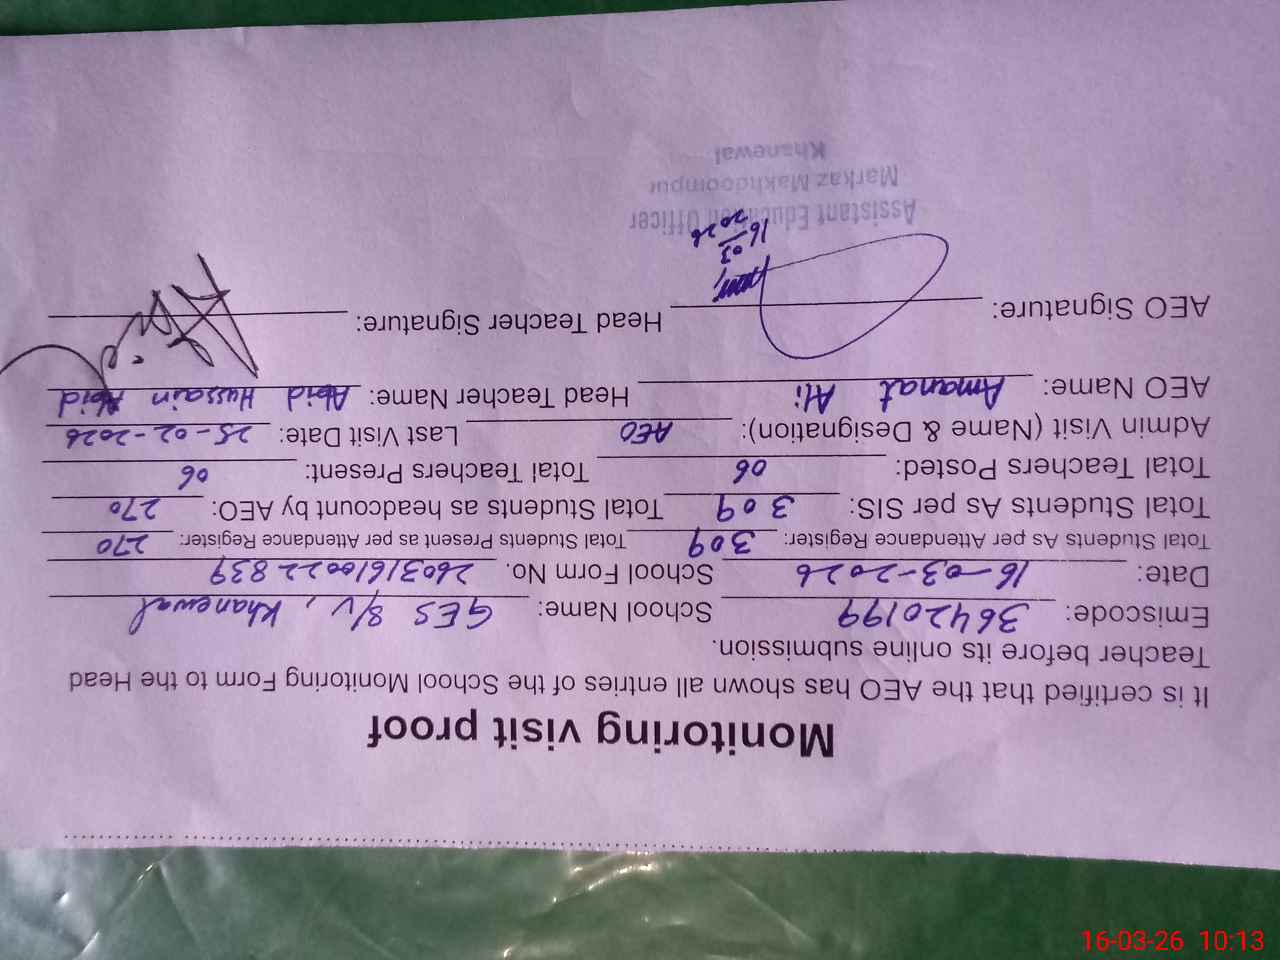 Monitoring visit proof
It is certified that the AEO has shown all entries of the School Monitoring Form to the Head
Teacher before its online submission.
Emiscode: 36420199 School Name: GES 8/V, Khanewal
Date: 16-03-2026 School Form No. 26031610022839
Total Students As per Attendance Register: 309 Total Students Present as per Attendance Register: 270
Total Students As per SIS: 309 Total Students as headcount by AEO: 270
Total Teachers Posted: 06 Total Teachers Present: 06
Admin Visit (Name & Designation): AEO Last Visit Date: 25-02-2026
AEO Name: Amanat Ali Head Teacher Name: Abid Hussain Abid
AEO Signature: Head Teacher Signature:
16/03
2026
Assistant Education Officer
Markaz Makhdoompur
Khanewal
16-03-26 10:13